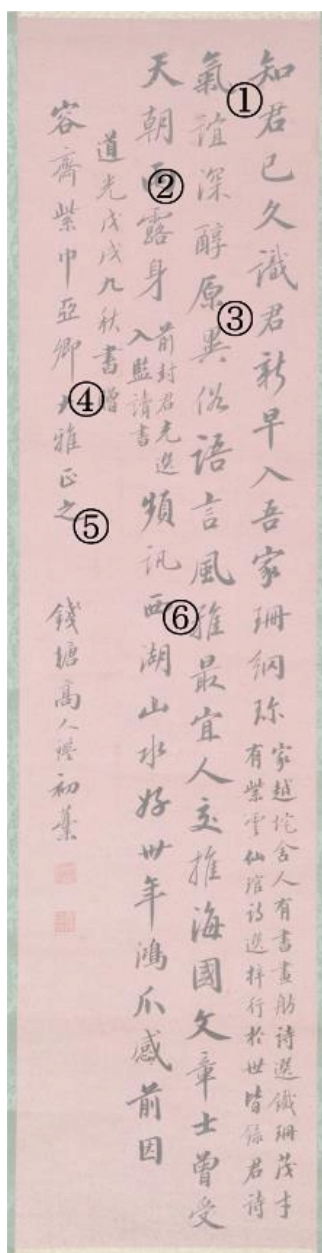 知君已久識君新早入吾家珊網珎
家越垞舍人有書畫舫詩選鐵珊茂才
有紫雲仙琯詩選梓行於世皆錄君詩
氣誼深醇原異俗語言風雅最宜人交推海國文章士曾受
天朝雨露身
前封君先選
入監讀書
頻訊西湖山水好卅年鴻爪感前因
道光戊戌九秋書贈
容齊紫巾亞卿大雅正之
錢塘高人鑑初藁
①
②
③
④
⑤
⑥